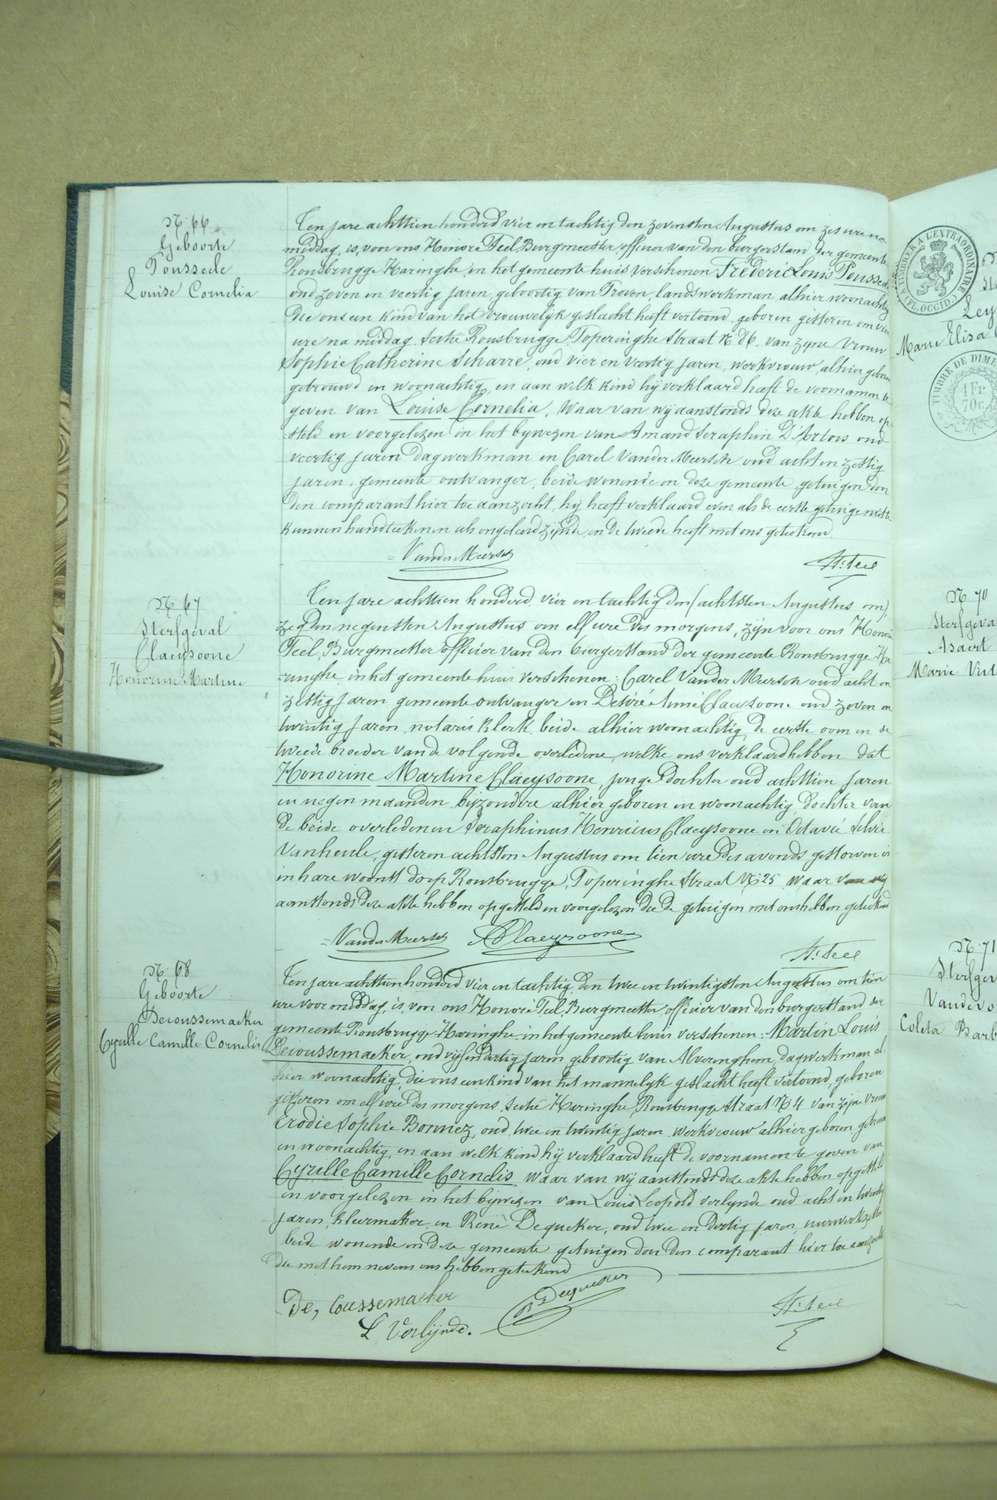 N. 66
Geboorte
Poussele
Louise Cornelia
Ten jare achttien honderd vier en tachtig den zevensten Augustus om zes ure na
middag, is, voor ons Honoré Teel Burgmeester officier van den burgerstand der gemeente
Rousbrugge Haringhe, in het gemeente huis verschenen Frederic Louis Poussele
oud zeven en veertig jaren, geboortig van Proven, landswerkman alhier woonachtig
die ons een kind van het vrouwelijk geslacht heeft vertoond, geboren gisteren om
ure na middag, sectie Rousbrugge, Poperinghe Straat N. d6. van zijne vrouw
Sophie Catherine Scharre, oud vier en veertig jaren, werkvrouw, alhier geboren
getrouwd en woonachtig, en aan welk kind hij verklaard heeft de voornamen te
geven van Louise Cornelia. Waar van wij aanstonds deze akte hebben op
steld en voorgelezen in het bijwezen van Amand Seraphin D'Artois oud
veertig jaren dagwerkman en Carel Vander Meersch oud acht en zestig
jaren, gemeente ontvanger, beide wonende in deze gemeente getuigen door
den comparant hier toe aanzocht, hij heeft verklaard even als de eerste getuige niet te
kunnen handteekenen als ongeleerd zijnde, en de tweede heeft met ons geteekend
VanderMeersch
H. Teel
N. 67
Sterfgeval
Claeysoone
Honorine Martine
Ten jare achttien honderd vier en tachtig den (achtsten Augustus om)
zeg den negensten Augustus om elf ure des morgens, zijn voor ons Honoré
Teel, Burgmeester officier van den burgerstand der gemeente Rousbrugge Ha
ringhe, in het gemeente huis verschenen: Carel Vander Meersch oud acht en
zestig jaren gemeente ontvanger en Desiré Aimé Claeysoone oud zeven en
twintig jaren, notaris klerk, beide alhier woonachtig, de eerste oom en de
tweede broeder van de volgende overledene, welke ons verklaard hebben dat
Honorine Martine Claeysoone, jonge dochter oud achttien jaren
en negen maanden, bijzondere alhier geboren en woonachtig dochter van
de beide overledenen Seraphinus Henricus Claeysoone en Octavie Sylvie
Vanheule, gisteren achtsten Augustus om tien ure des avonds gestorven is
in hare woonst dorp Rousbrugge, Poperinghe Straat N. 25 Waar van wij
aanstonds deze akte hebben opgesteld en voorgelezen die de getuigen met ons hebben geteekend
VanderMeersch
D Claeysoone
H. Teel
N. 68
Geboorte
Decoussemaeker
Cyrille Camille Cornelis
Ten jare achttien honderd vier en tachtig, den twee en twintigsten Augustus om tien
ure voor middag, is, voor ons Honoré Teel, Burgmeester officier van den burgerstand der
gemeente Rousbrugge Haringhe, in het gemeente huis verschenen: Martin Louis
Decoussemaeker, oud vijf en dertig jaren geboortig van Alveringhem, dagwerkman al
hier woonachtig, die ons een kind van het mannelijk geslacht heeft vertoond, geboren
gisteren om elf ure des morgens, sectie Haringhe, Rousbrugge Straat N. 4 van zijne vrouw
Elodie Sophie Bonnez, oud twee en twintig jaren, werkvrouw alhier geboren getrouwd
en woonachtig, en aan welk kind hij verklaard heeft de voornamen te geven van
Cyrille Camille Cornelis waar van wij aanstonds deze akte hebben opgesteld
en voorgelezen in het bijwezen van Louis Leopold Verlynde oud acht en twintig
jaren, kleermaker, en René Dequeker, oud twee en dertig jaren,
beide wonende in deze gemeente getuigen door den comparant hier toe aanzocht
die met hem nevens ons hebben geteekend
De, Coussemacker
L Verlijnde.
R. Dequeker
H. Teel
TIMBRE A L'EXTRAORDINAIRE
(FL. OCCID.)
Ley
Marie Elisa
TIMBRE DE DIME
1 Fr.
70 c.
N. 70
Sterfgeva
Asaert
Marie Virt
N. 71
Sterfgev
Vandevo
Coleta Barb